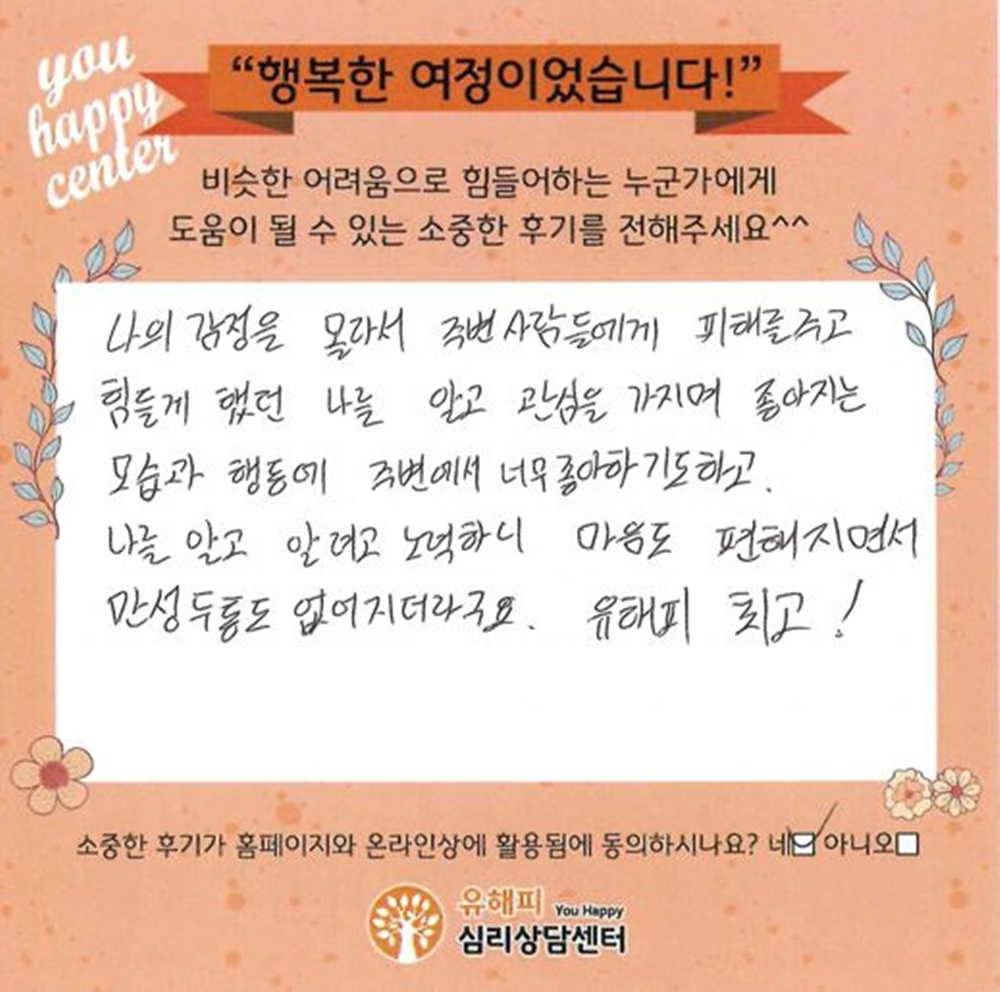 you
happy
center
“행복한 여정이었습니다!”
비슷한 어려움으로 힘들어하는 누군가에게
도움이 될 수 있는 소중한 후기를 전해주세요^^
나의 감정을 몰라서 주변사람들에게 피해를 주고
힘들게 했던 나를 알고 관심을 가지며 좋아지는
모습과 행동에 주변에서 너무 좋아하기도하고.
나를 알고 알려고 노력하니 마음도 편해지면서
만성두통도 없어지더라구요. 유해피 최고!
소중한 후기가 홈페이지와 온라인상에 활용됨에 동의하시나요? 네☑ 아니오□
유해피 You Happy
심리상담센터